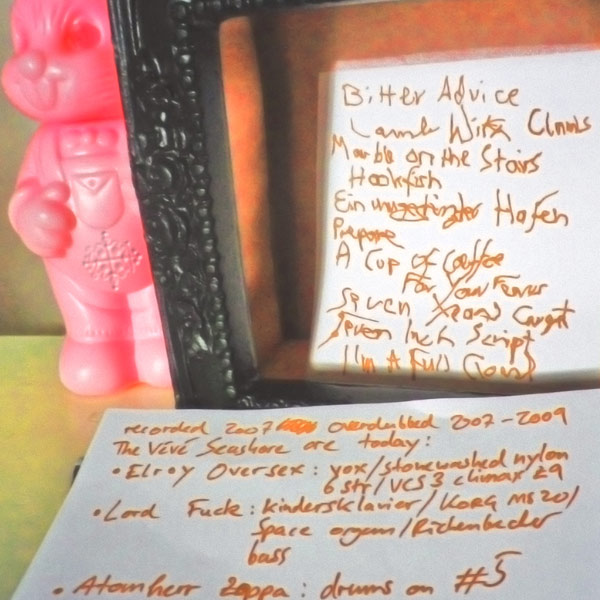 Bitter Advice
With Clowns
Marble on the Stairs
Hookfish
Ein Hafen
Prepare
A Cup of Coffee
For Your Fears
Seven Years Caught
Seven Inch Script
I'm A Full Cloud
recorded 2007 overdubbed 2007-2009
The Vévé Seashore are today:
• Elroy Oversex: vox/stonewashed nylon
6 str/VCS3 climax Z9
• Lord Fuck: kindersklavier/KORG MS20/
Space organ/Rickenbacker
bass
• Atomherr Zoppa: drums on #5